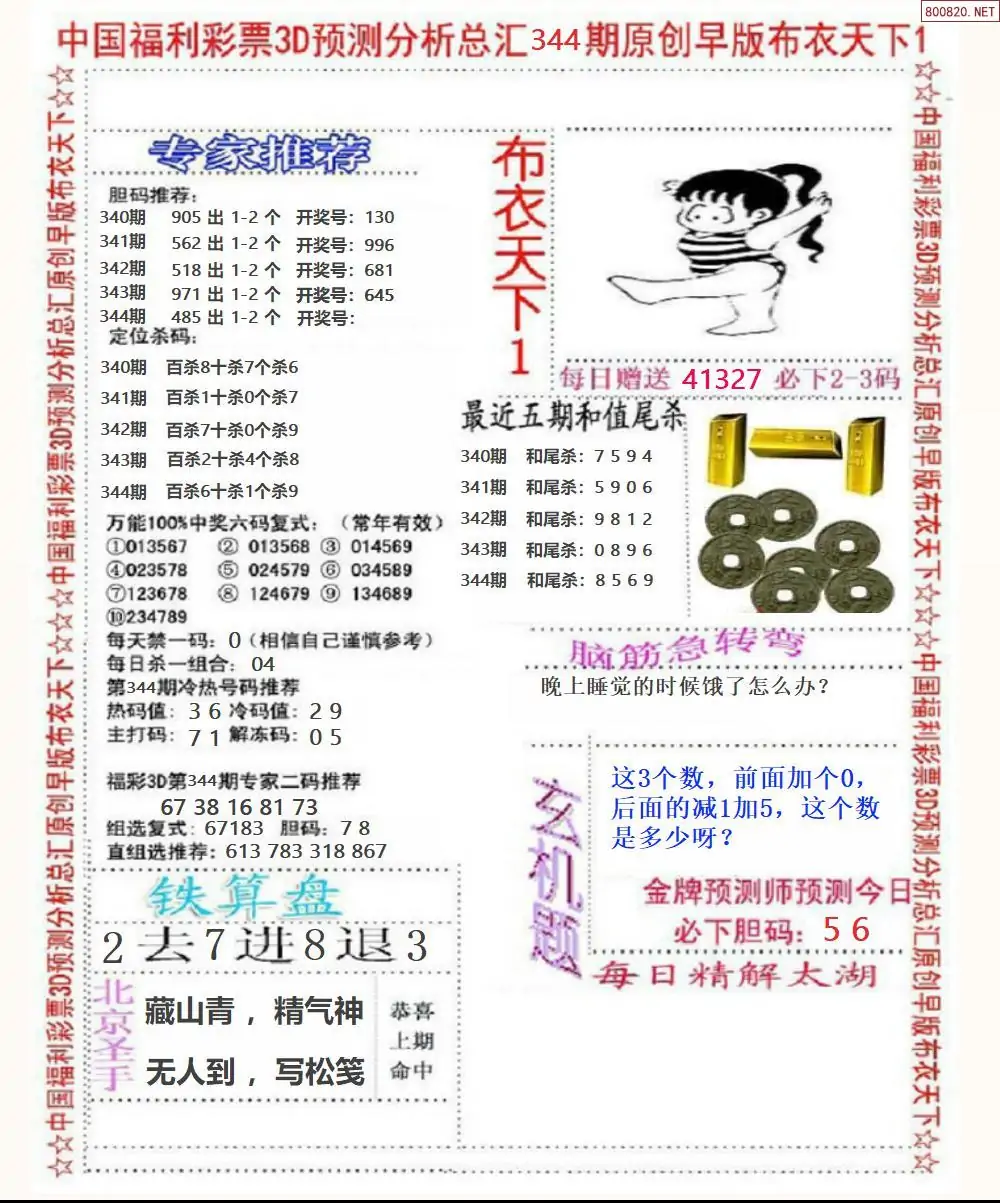 800820.NET
中国福利彩票3D预测分析总汇344期原创早版布衣天下1
☆☆中国福利彩票3D预测分析总汇原创早版布衣天下☆☆中国福利彩票3D预测分析总汇原创早版布衣天下☆☆
专家推荐
胆码推荐：
340期 905 出 1-2 个 开奖号：130
341期 562 出 1-2 个 开奖号：996
342期 518 出 1-2 个 开奖号：681
343期 971 出 1-2 个 开奖号：645
344期 485 出 1-2 个 开奖号：
定位杀码：
340期 百杀8十杀7个杀6
341期 百杀1十杀0个杀7
342期 百杀7十杀0个杀9
343期 百杀2十杀4个杀8
344期 百杀6十杀1个杀9
万能100%中奖六码复式：（常年有效）
①013567 ② 013568 ③ 014569
④023578 ⑤ 024579 ⑥ 034589
⑦123678 ⑧ 124679 ⑨ 134689
⑩234789
每天禁一码：0（相信自己谨慎参考）
每日杀一组合：04
第344期冷热号码推荐
热码值：3 6 冷码值：2 9
主打码：7 1 解冻码：0 5
福彩3D第344期专家二码推荐
67 38 16 81 73
组选复式：67183 胆码：7 8
直组选推荐：613 783 318 867
铁算盘
2去7进8退3
北京圣手
藏山青，精气神
无人到，写松笺
恭喜
上期
命中
布衣天下1
每日赠送 41327 必下2-3码
最近五期和值尾杀
340期 和尾杀：7 5 9 4
341期 和尾杀：5 9 0 6
342期 和尾杀：9 8 1 2
343期 和尾杀：0 8 9 6
344期 和尾杀：8 5 6 9
脑筋急转弯
晚上睡觉的时候饿了怎么办？
玄机题
这3个数，前面加个0，
后面的减1加5，这个数
是多少呀？
金牌预测师预测今日
必下胆码：5 6
每日精解太湖
☆☆中国福利彩票3D预测分析总汇原创早版布衣天下☆☆☆中国福利彩票3D预测分析总汇原创早版布衣天下☆☆